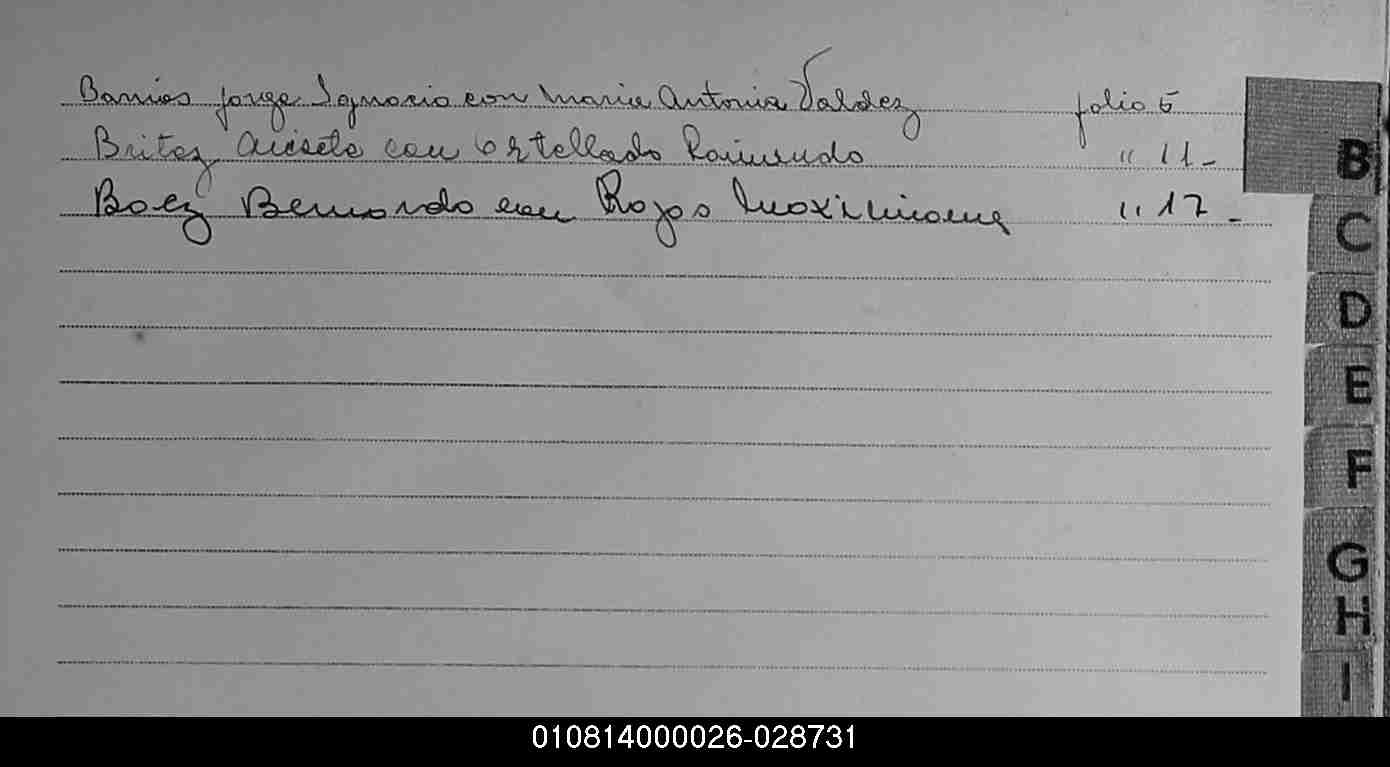 Barrios Jorge Ignacio con Maria Antonia Valdez folio 5
Britez Aniceto con Ortellado Raimundo " 11 -
Baez Bernardo con Rojas Maximiana " 17 -
B
C
D
E
F
G
H
I
010814000026-028731